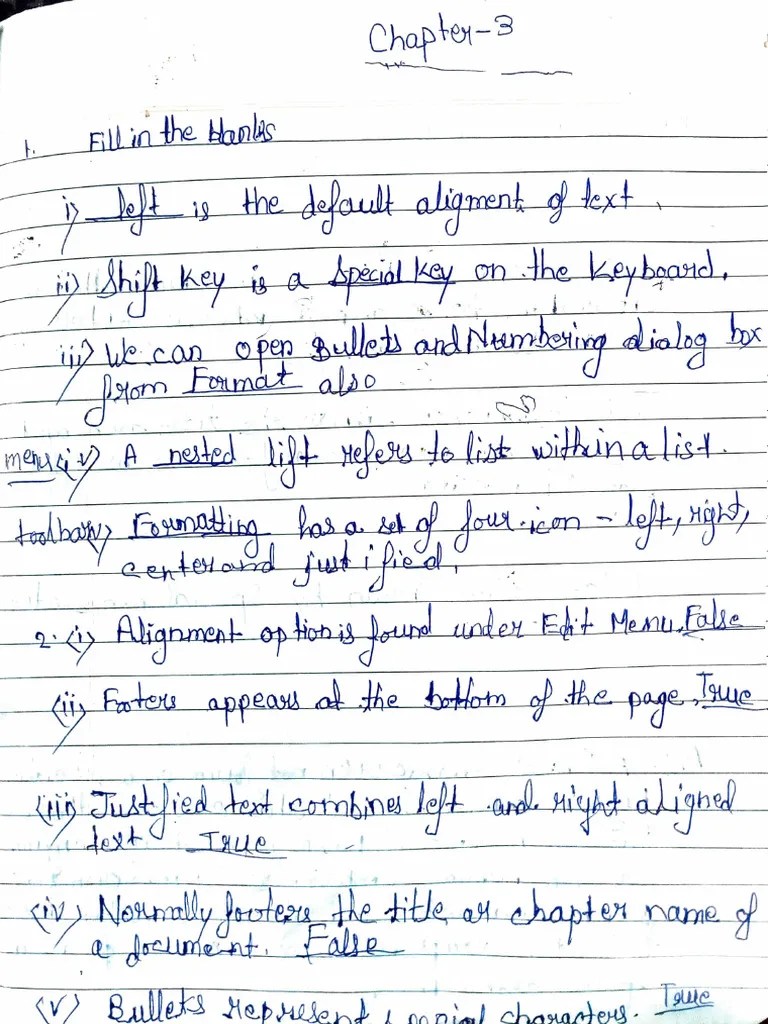 Chapter-3
1. Fill in the blanks
i) left is the default aligment of text.
ii) Shift key is a special key on the keyboard.
iii) We can open Bullets and Numbering dialog box
from Format also
menu iv) A nested lift refers to list within a list.
toolbar v) Formatting has a set of four icon - left, right,
center and justified.
2. (i) Alignment option is found under Edit Menu. False
(ii) Footers appears at the bottom of the page. True
(iii) Justfied text combines left and right aligned
text True
(iv) Normally footers the title or chapter name of
a document. False
(v) Bullets represent special characters. True